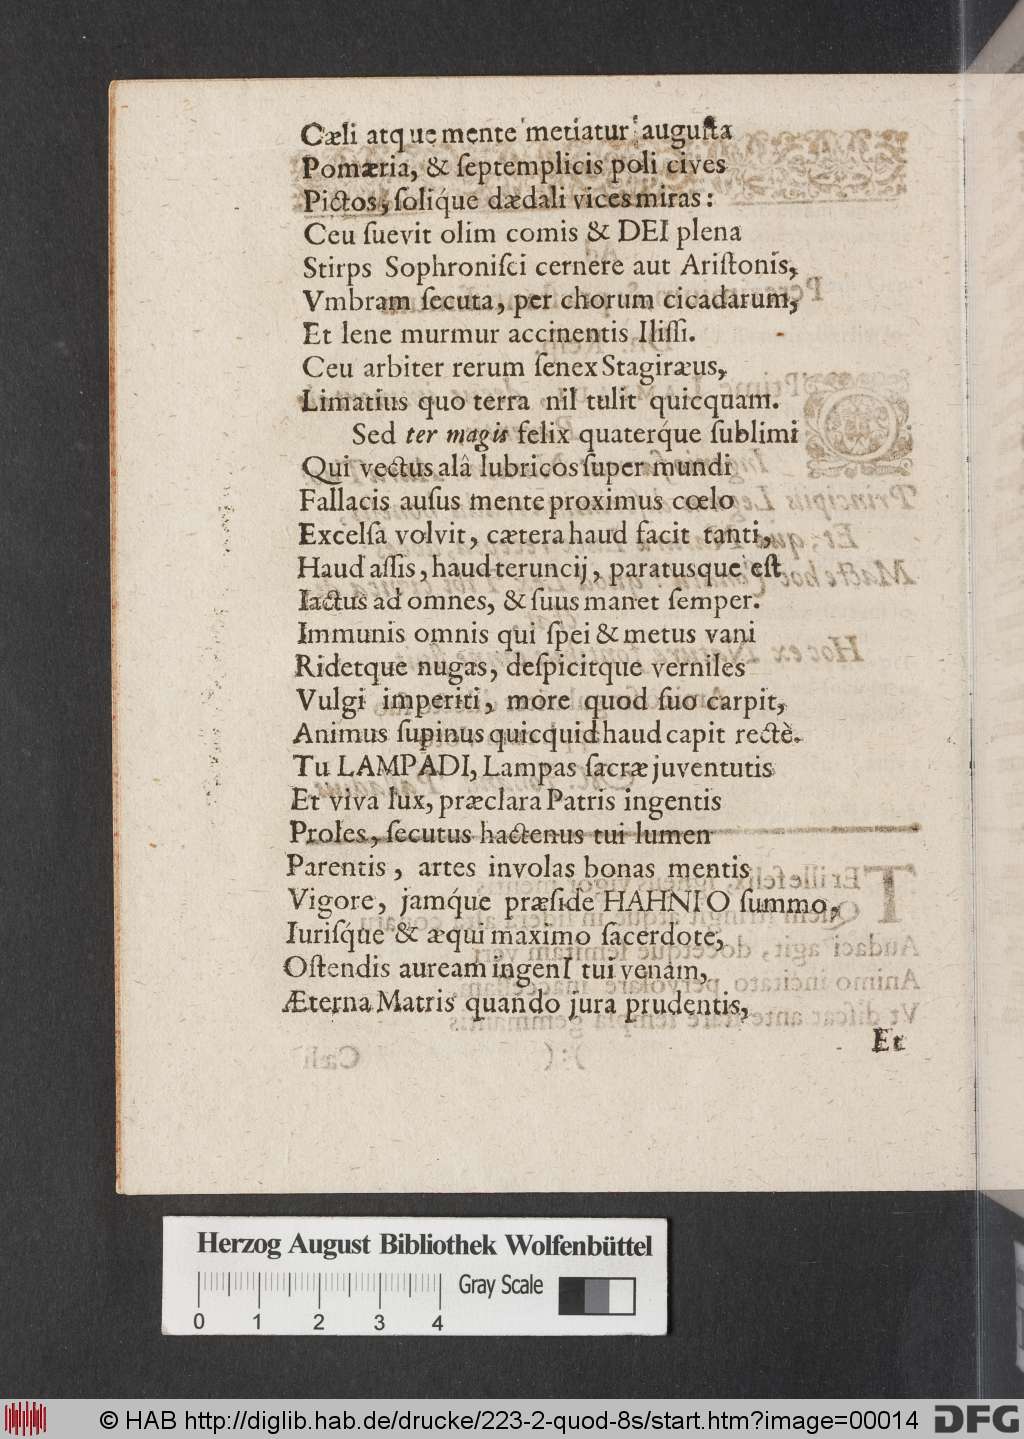 Cæli atque mente metiatur augusta
Pomæria, & ſeptemplicis poli cives
Pictos, ſoliq́ue dædali vices miras:
Ceu ſuevit olim comis & DEI plena
Stirps Sophroniſci cernere aut Ariſtonis,
Vmbram ſecuta, per chorum cicadarum,
Et lene murmur accinentis Iliſſi.
Ceu arbiter rerum ſenex Stagiræus,
Limatius quo terra nil tulit quicquam.
Sed ter magis felix quaterq́ue ſublimi
Qui vectus alâ lubricos ſuper mundi
Fallacis auſus mente proximus cœlo
Excelſa volvit, cætera haud facit tanti,
Haud aſſis, haud teruncij, paratusque eſt
Iactus ad omnes, & ſuus manet ſemper.
Immunis omnis qui ſpei & metus vani
Ridetque nugas, deſpicitque verniles
Vulgi imperiti, more quod ſuo carpit,
Animus ſupinus quicquid haud capit rectè.
Tu LAMPADI, Lampas ſacræ juventutis
Et viva lux, præclara Patris ingentis
Proles, ſecutus hactenus tui lumen
Parentis, artes involas bonas mentis
Vigore, jamq́ue præſide HAHNIO ſummo,
Iuriſq́ue & æqui maximo ſacerdote,
Oſtendis auream ingenI tui venam,
Æterna Matris quando jura prudentis,
Et
Herzog August Bibliothek Wolfenbüttel
Gray Scale
0 1 2 3 4
© HAB http://diglib.hab.de/drucke/223-2-quod-8s/start.htm?image=00014
DFG